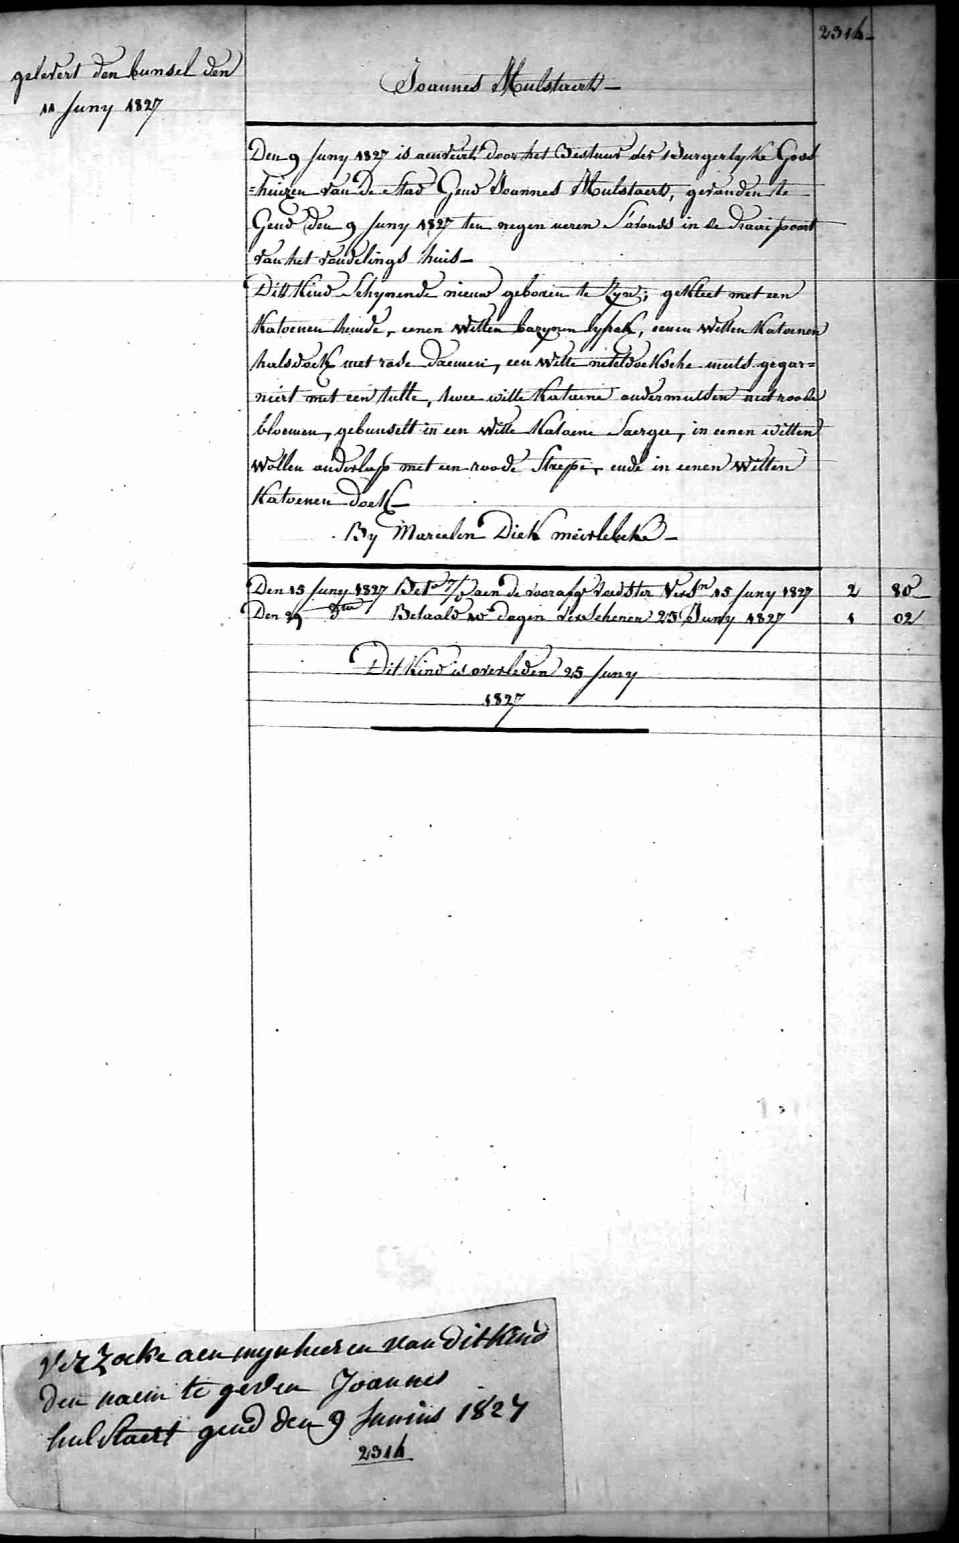 2314
gelevert den bunsel den
11 Juny 1827
Joannes Hulstaert
Den 9 Juny 1827 is aenveird door het Bestuur der Burgerlyke Gods
=huizen van de Stad Gend Joannes Hulstaert, gevonden te
Gend den 9 Juny 1827 ten negen ueren Savonds in de draai poort
van het vondelings huis
Ditt Kind Schynende nieuw geboren te Zyn; gekleet met een
Katoenen hemde, eenen Witten bazynen lyfrok, eenen Witten Katoenen
halsdoek met rode, een Witte neteldoeksche muts gegar=
niert met een tulle, twee witte Katoene ondermutsen met roode
bloemen, gebunselt in een Witte Katoene Saergie, in eenen witten
Wollen onderlap met een roode Strepe, ende in eenen Witten
Katoenen doek
By Marcelen Diek meirelbeke
Den 15 Juny 1827 Bet aen de voorafge Voedster Versn 15 Juny 1827 2 80
Den 29 dto Betaald 10 dagen Verschenen 25 Juny 1827 1 02
Dit Kind is overleden 25 Juny
1827
Verzoeke aen mynheeren van dit kind
den naem te geven Joannes
hulstaert gend den 9 Junius 1827
2314